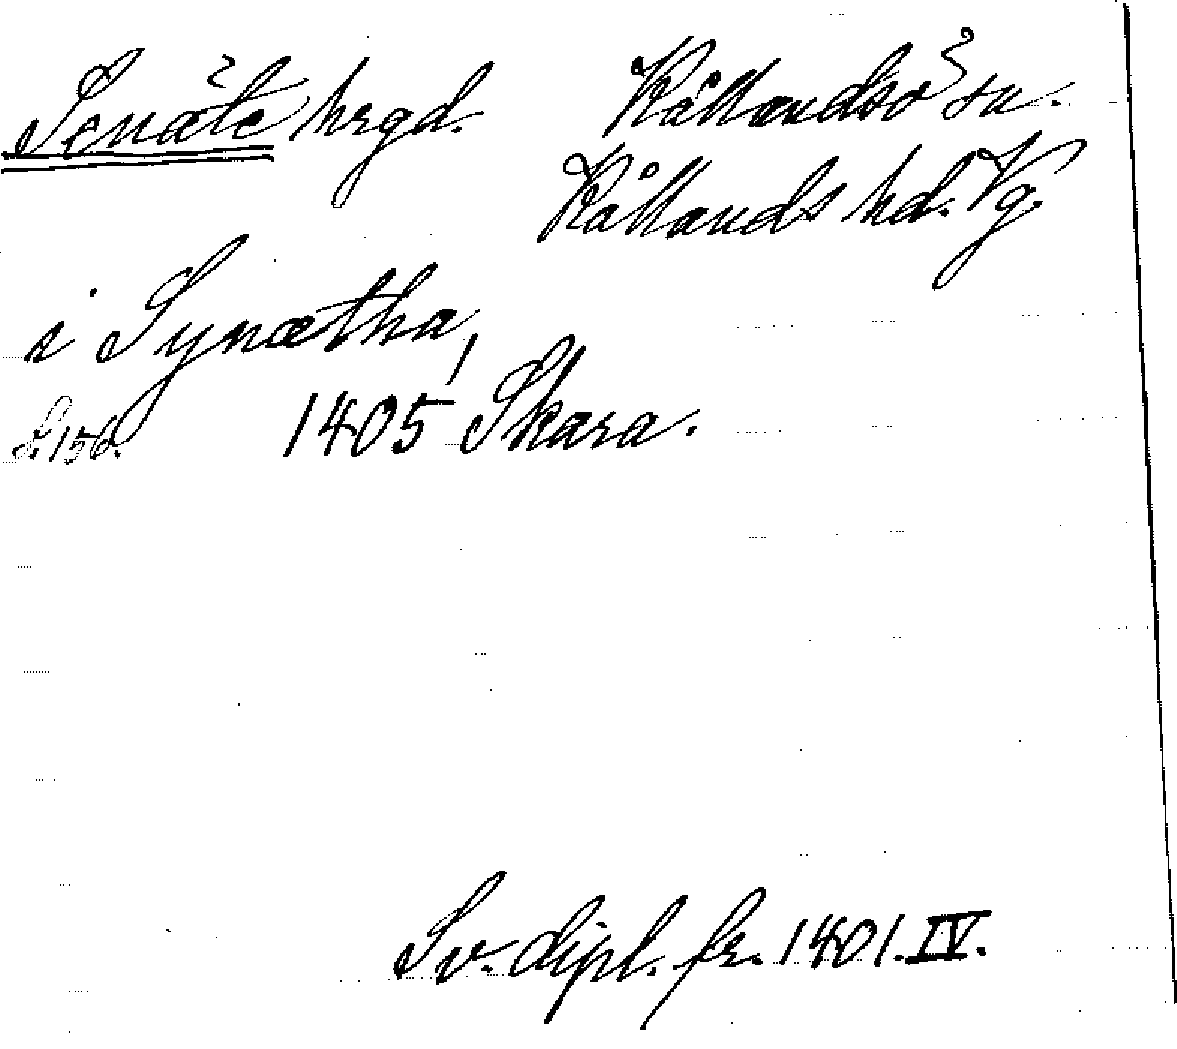 Senäte hrgd. Kållandsö sn.
Kållands hd. Vg.
i Synætha,
S. 156. 1405 Skara.
Sv. dipl. fr. 1401. IV.